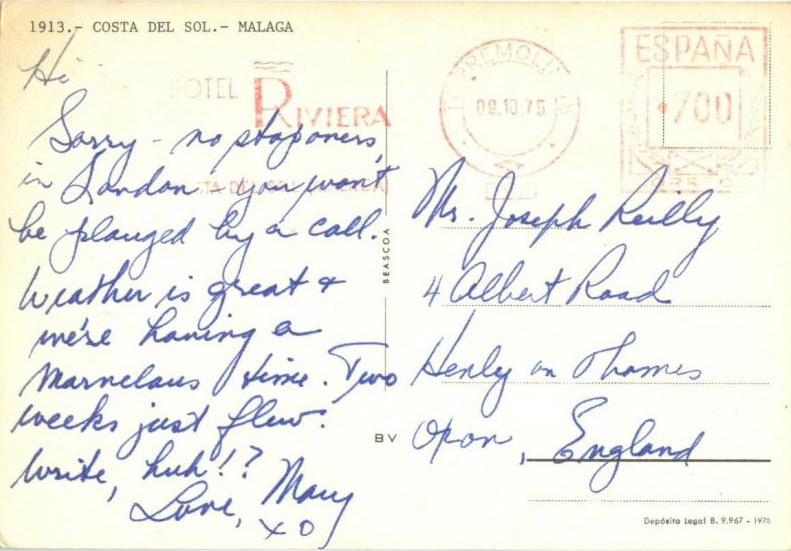 1913.- COSTA DEL SOL.- MALAGA
Hi
HOTEL RIVIERA
Sorry - no stopovers
in London - you won't
be plauged by a call.
Weather is great +
we're having a
marvelous time. Two
weeks just flew.
Write, huh!?
Love, Mary
XO
BEASCOA
PREMOLI
09.10.75
ESPAÑA
700
Mr. Joseph Reilly
4 Albert Road
Henly on Thames
Oxon, England
BV
Depósito Legal B. 9.967 - 1975